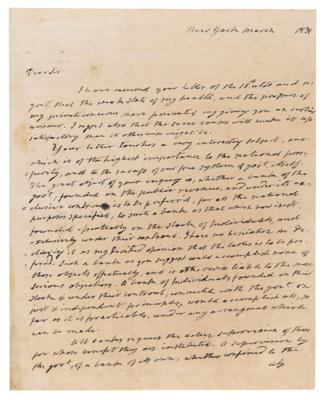 New York March 1831
Dear Sir
I have received your letter of the 15th ulto and re-
gret that the weak state of my health, and the pressure of
my private concerns, have prevented my giving you an earlier
answer. I regret also that the same causes will make it less
satisfactory than it otherwise might be.
Your letter touches a very interesting subject, one
which is of the highest importance to the national pros-
perity, and to the success of our free system of govt. itself.
The great object of your enquiry is, whether a bank of the
govt., founded on the public revenue, and under its ex-
clusive controul is to be preferred, for all the national
purposes specified, to such a bank as that which now exist,
founded on the Stock of Individuals, and
exclusively under their controul. I have no hesitation in de-
claring it as my opinion that the latter is to be pre-
ferred. Such a bank as you suggest could accomplish none of
those objects effectually, and is otherwise liable to the most
serious objections. A bank of Individuals founded on their
Stock & under their controul, connected with the govt. on
just & independent principles, would accomplish all, so
far as it is practicable, under any arrangement which
can be made.
All banks require the active supervision of those
for whose benefit they are instituted. A supervision by
the govt., of a bank of its own, whether confined to the